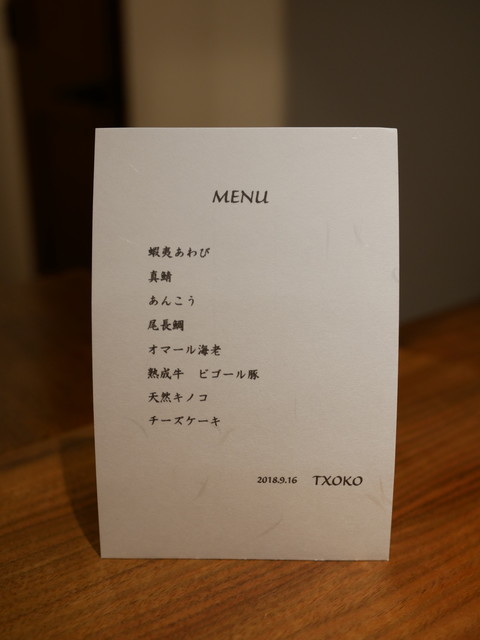 MENU
蝦夷あわび
真鯖
あんこう
尾長鯛
オマール海老
熟成牛　ビゴール豚
天然キノコ
チーズケーキ
2018.9.16 TXOKO